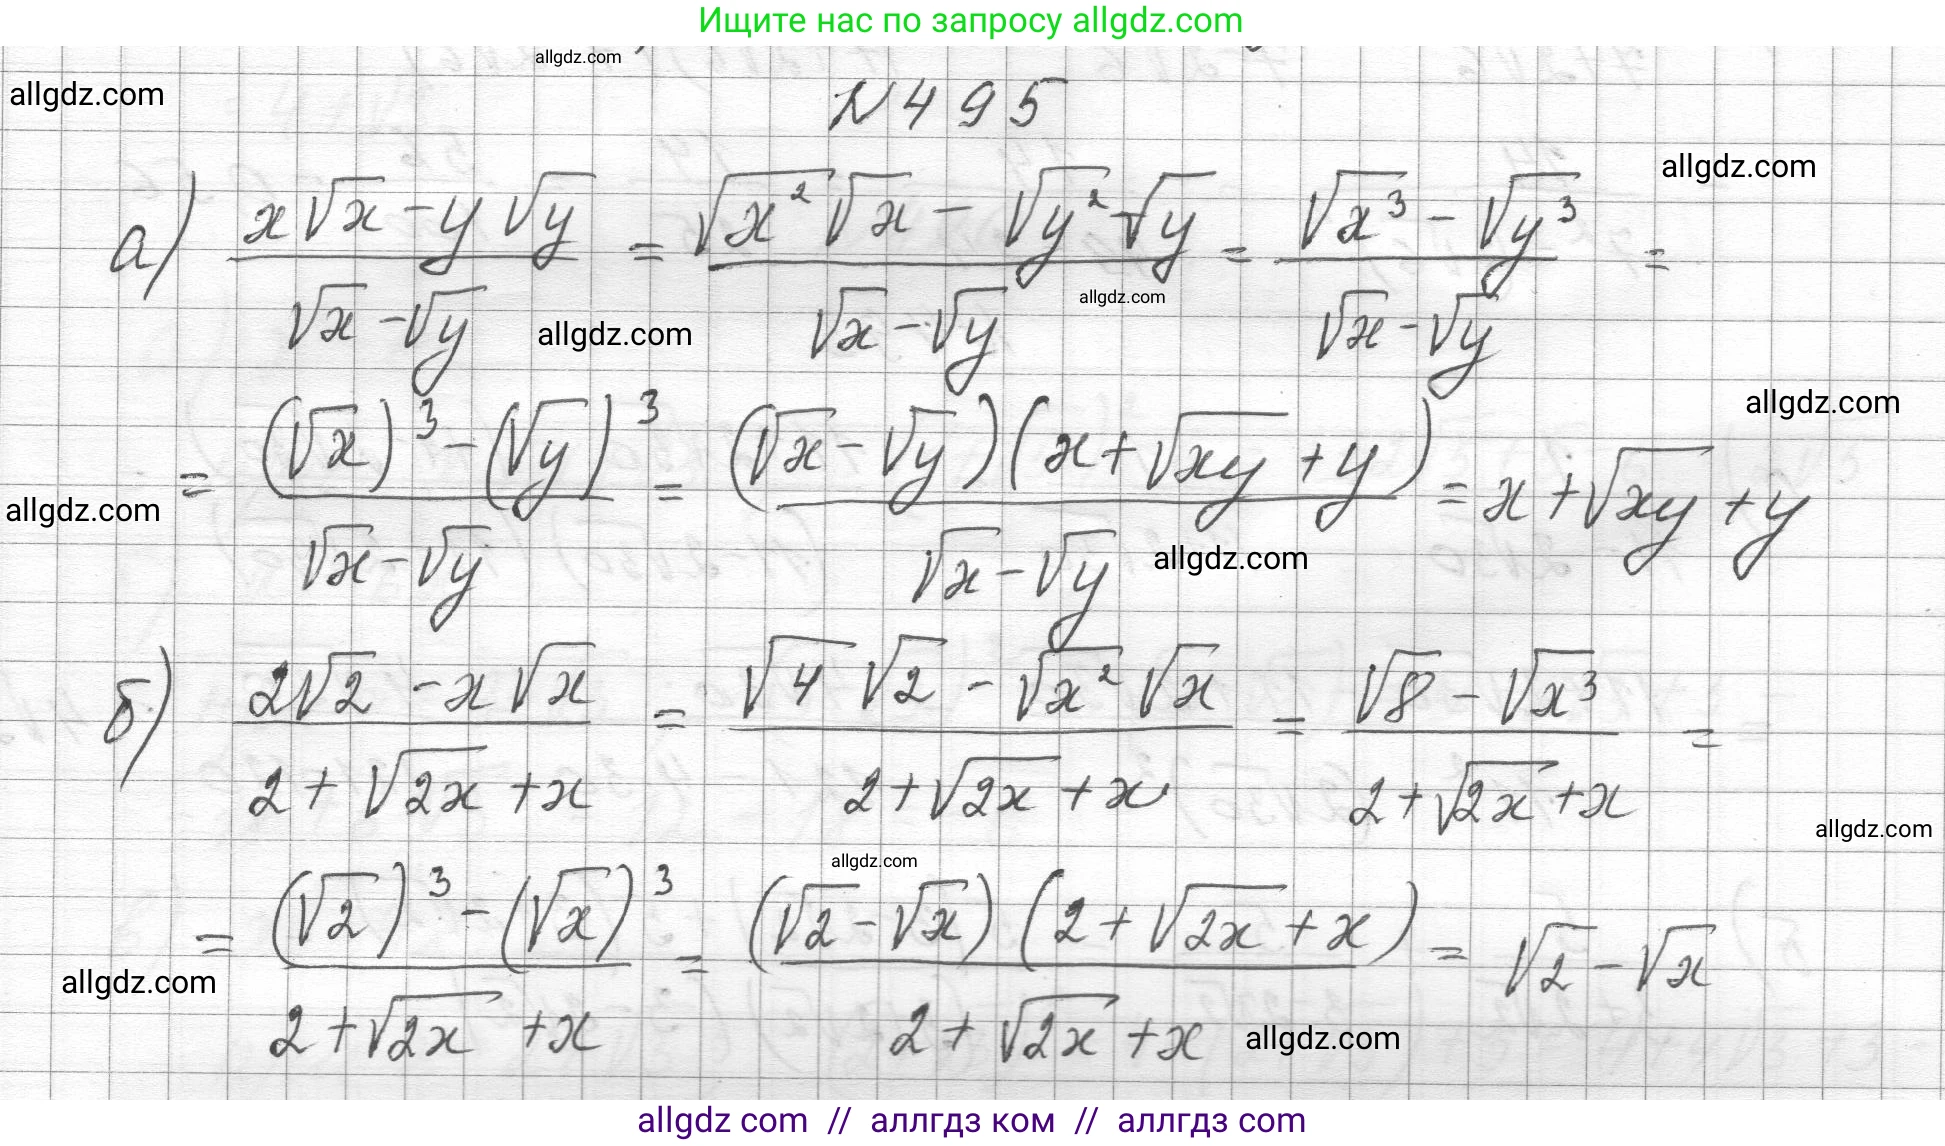 Ищите нас по запросу allgdz.com
allgdz.com
allgdz.com
N 495
allgdz.com
а) (x√x - y√y)/(√x - √y) = (√x²√x - √y²√y)/(√x - √y) = (√x³ - √y³)/(√x - √y) =
allgdz.com
allgdz.com
allgdz.com
= ((√x)³ - (√y)³)/(√x - √y) = ((√x - √y)(x + √xy + y))/(√x - √y) = x + √xy + y
allgdz.com
allgdz.com
б) (2√2 - x√x)/(2 + √2x + x) = (√4√2 - √x²√x)/(2 + √2x + x) = (√8 - √x³)/(2 + √2x + x) =
allgdz.com
allgdz.com
= ((√2)³ - (√x)³)/(2 + √2x + x) = ((√2 - √x)(2 + √2x + x))/(2 + √2x + x) = √2 - √x
allgdz.com
allgdz.com
allgdz com // аллгдз ком // аллгдз com